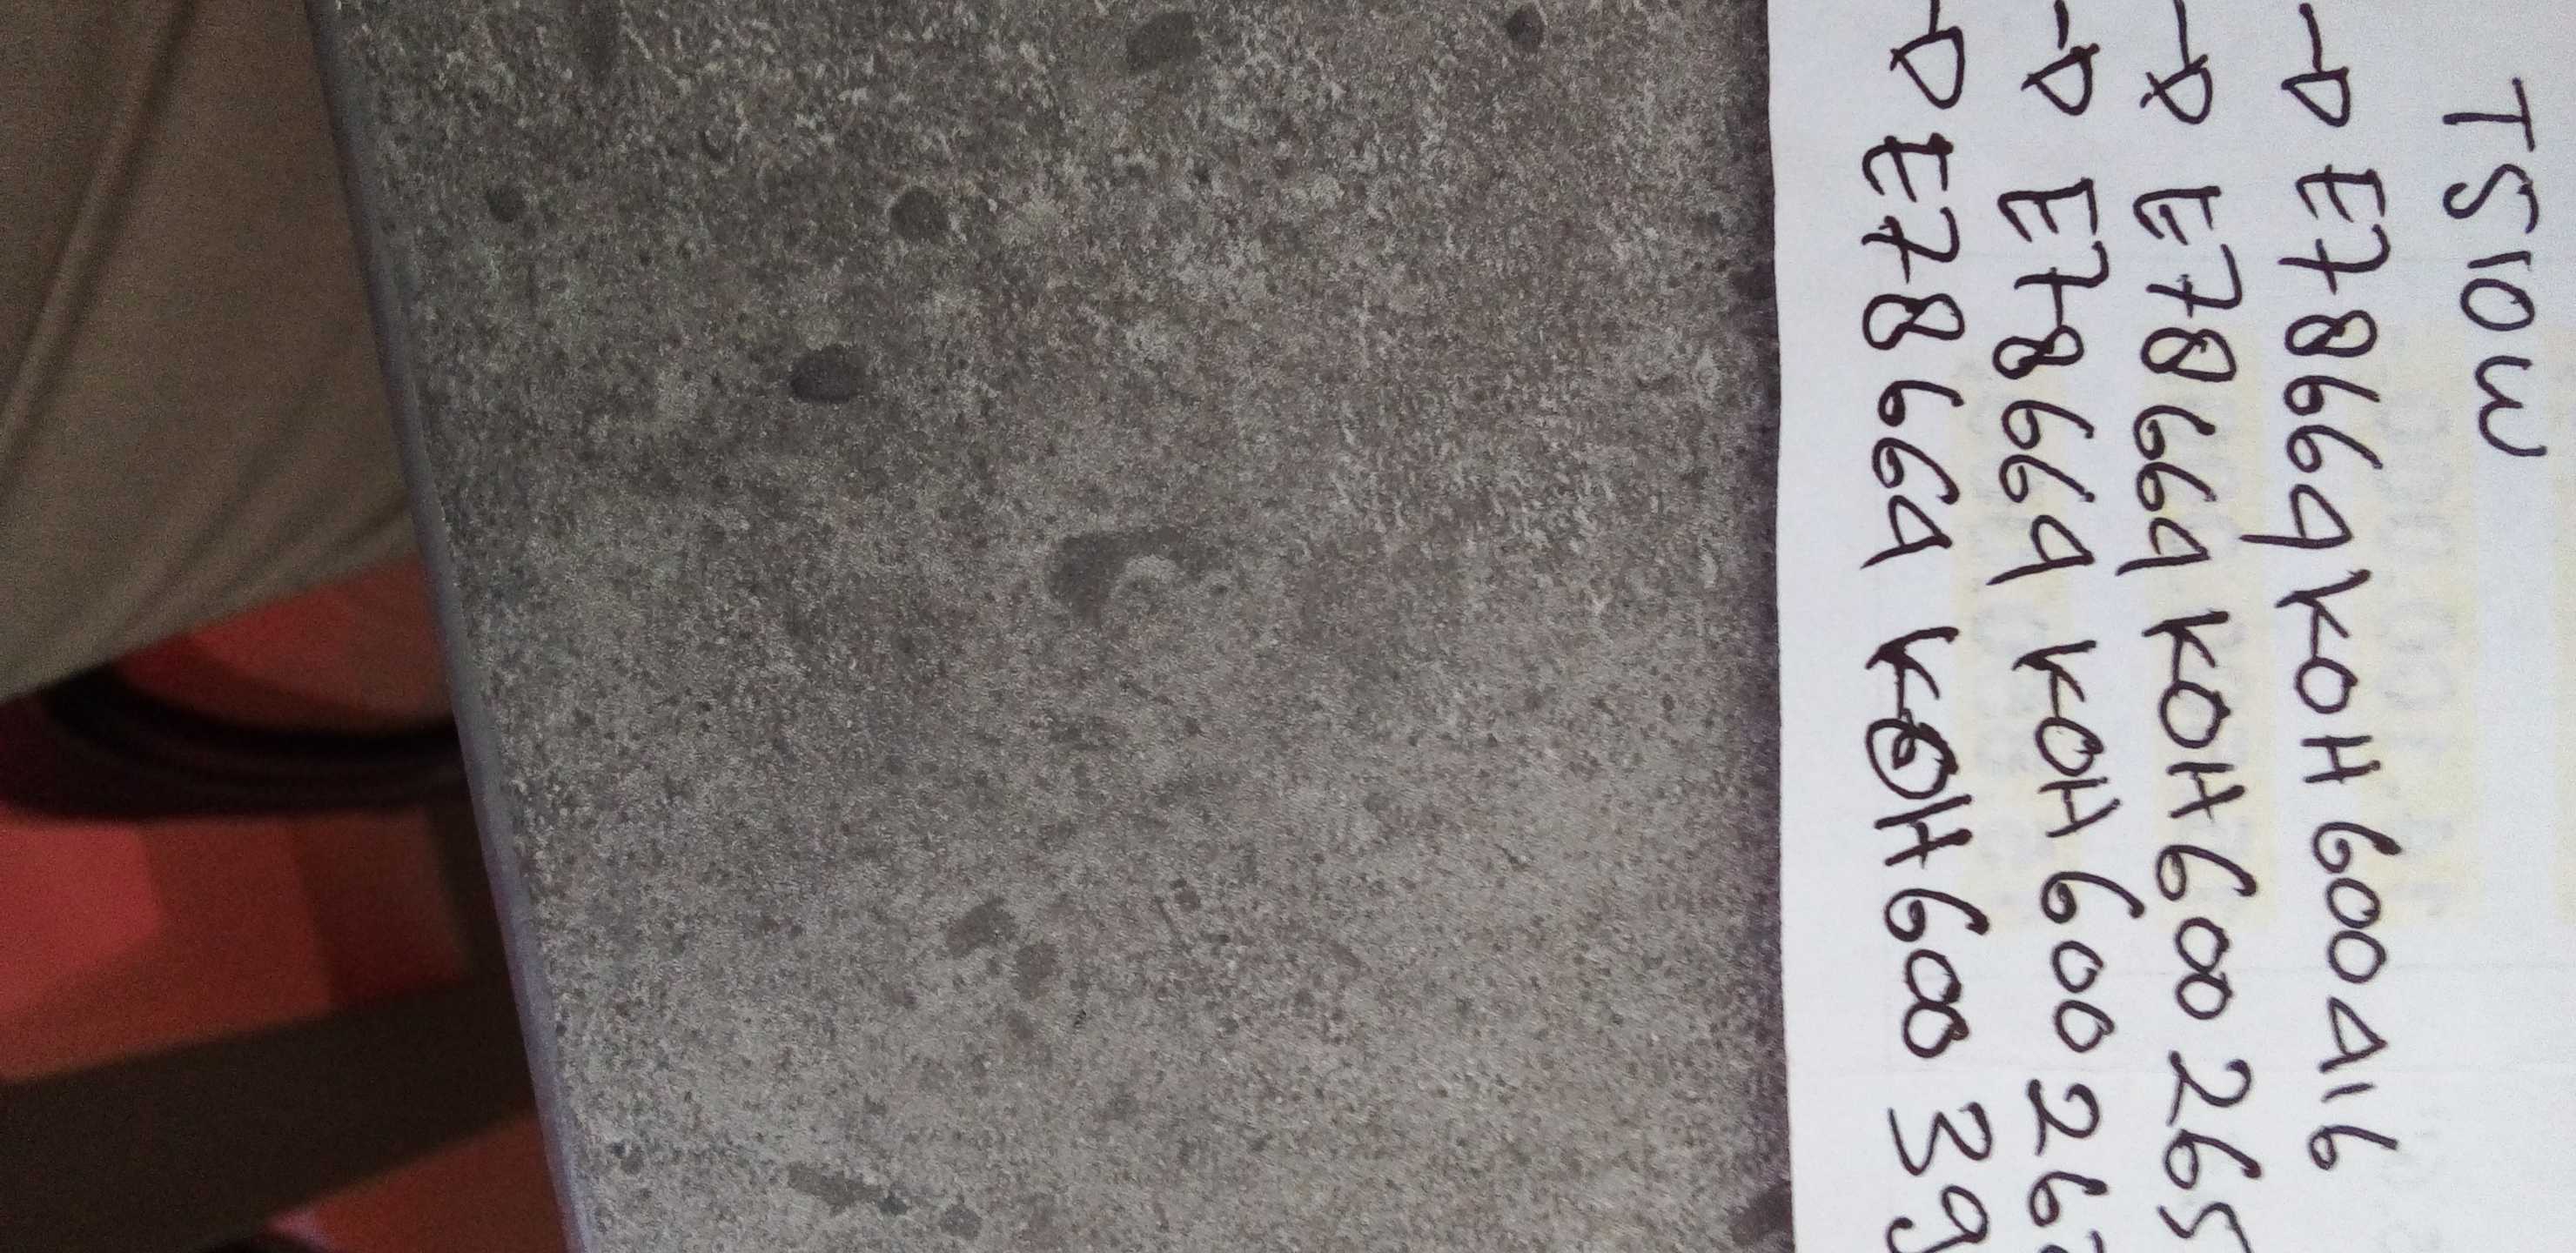 TS103
→ E78664KOH600416
→ E78664KOH600265
→ E78664KOH600262
→ E78664KOH60039